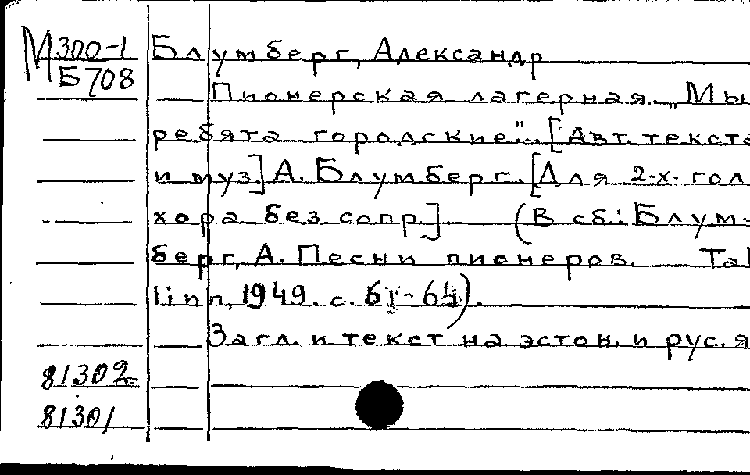 М 300-1 Блумберг, Александр
Б708
Пионерская лагерная. „Мы
ребята городские". [Авт. текста
и муз] А. Блумберг. [Для 2-х. гол
хора без сопр.] (В сб.: Блум-
берг, А. Песни пионеров. Tal
linn, 1949. с. 61-64).
Загл. и текст на эстон. и рус. я
81302
81301